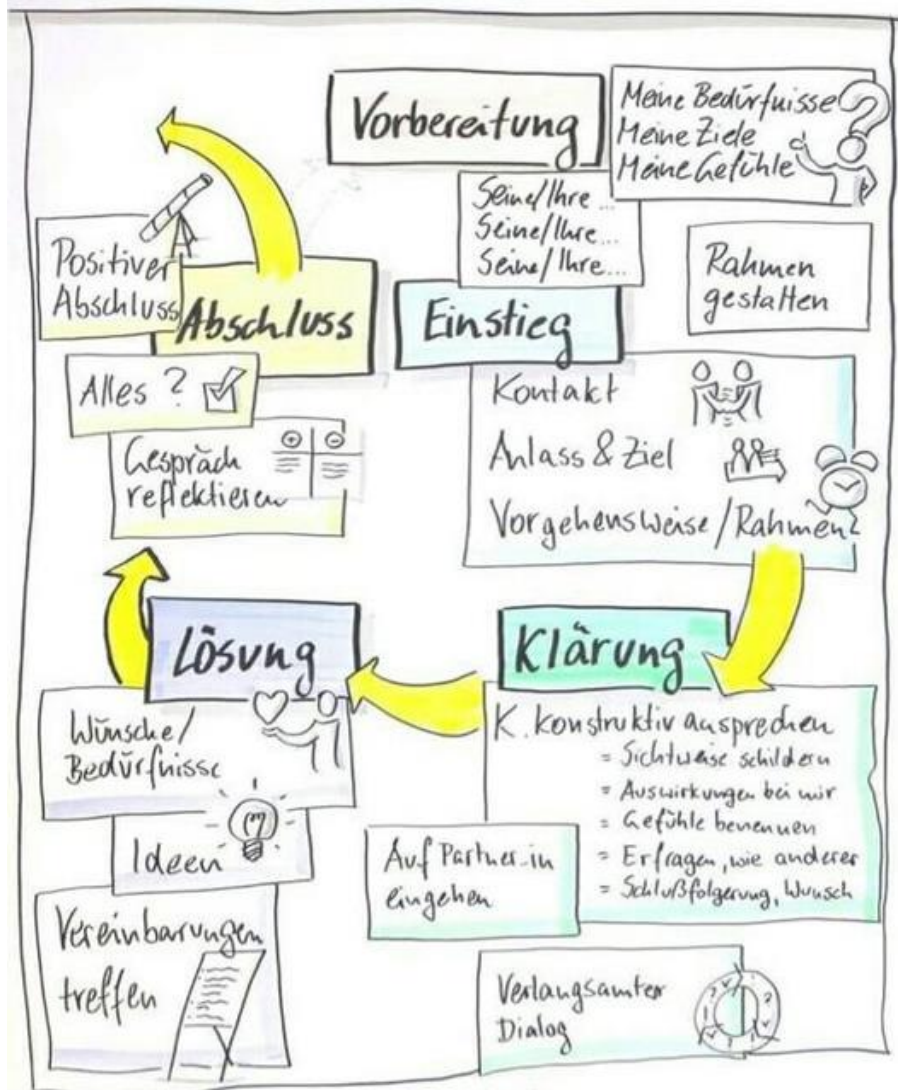 Vorbereitung
Meine Bedürfnisse
Meine Ziele
Meine Gefühle
Seine/Ihre...
Seine/Ihre...
Seine/Ihre...
Rahmen
gestalten
Einstieg
Kontakt
Anlass & Ziel
Vorgehensweise/Rahmen
Klärung
K. konstruktiv ansprechen
= Sichtweise schildern
= Auswirkungen bei mir
= Gefühle benennen
= Erfragen, wie anderer
= Schlußfolgerung, Wunsch
Auf Partner_in
eingehen
Verlangsamter
Dialog
Lösung
Wünsche/
Bedürfnisse
Ideen
Vereinbarungen
treffen
Abschluss
Positiver
Abschluss
Alles ?
Gespräch
reflektieren